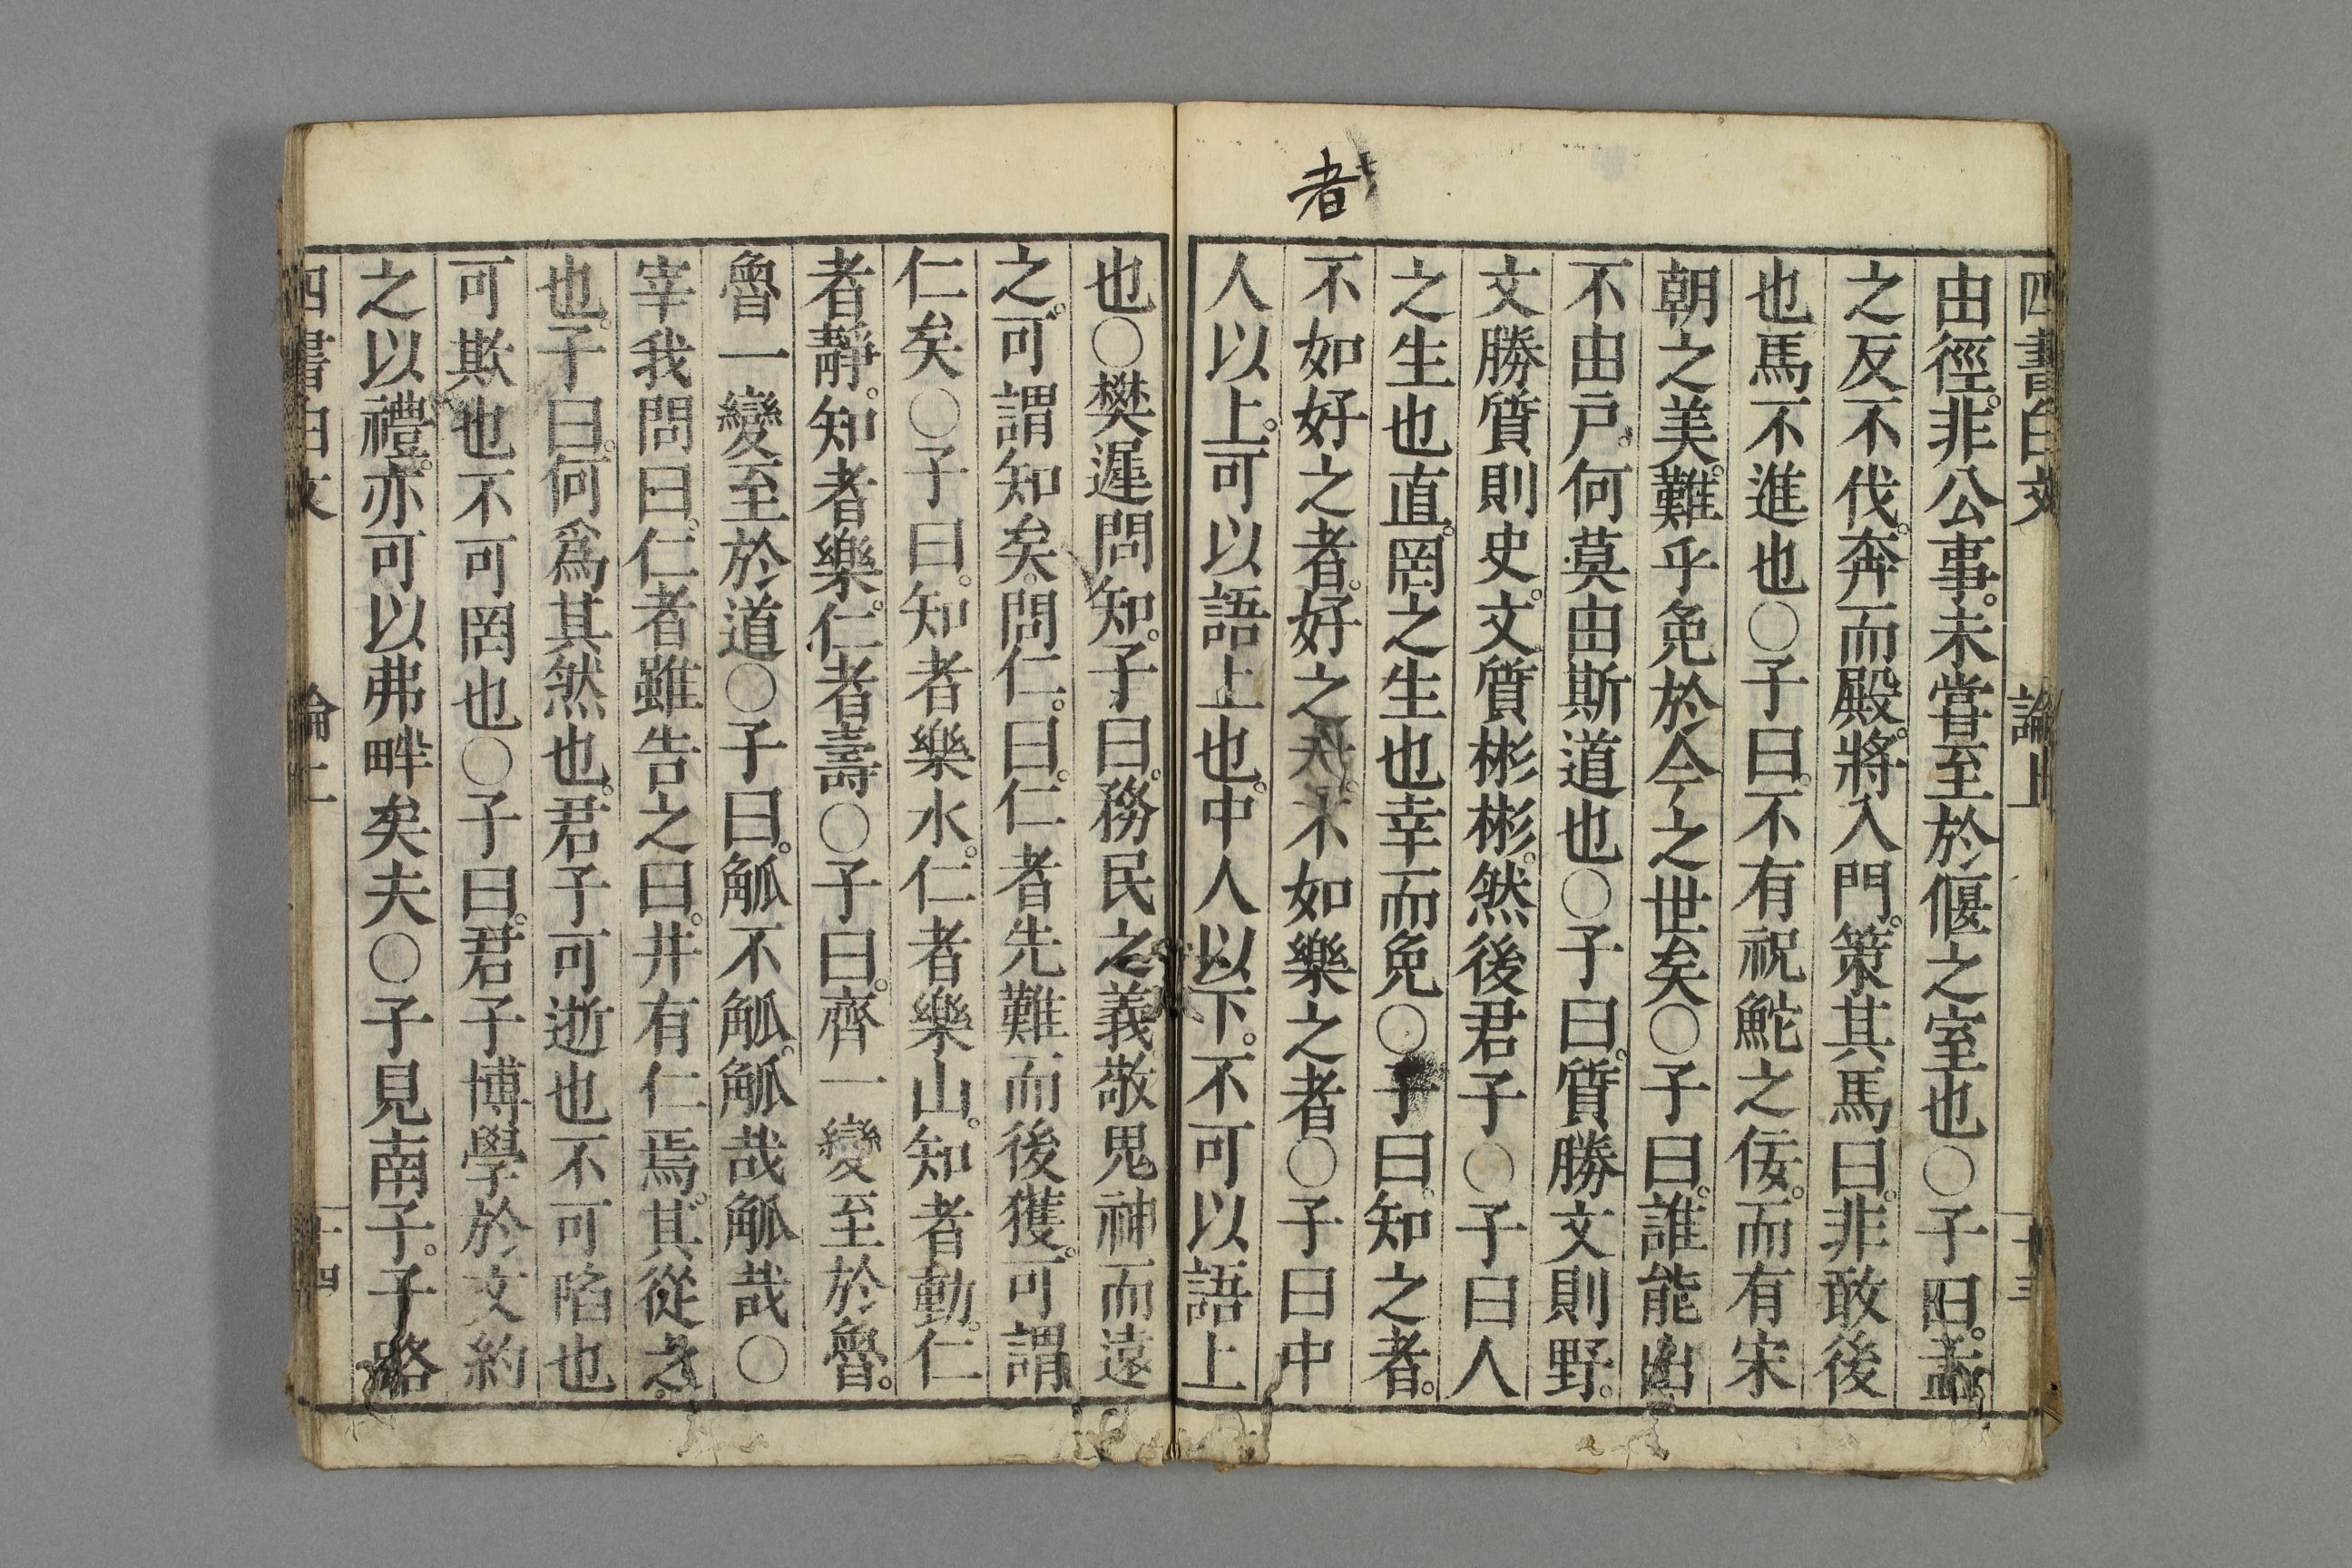 四書白文 論上 十三
由徑。非公事。未嘗至於偃之室也〇子曰。孟
之反不伐。奔而殿。將入門。策其馬曰。非敢後
也馬不進也〇子曰。不有祝鮀之佞。而有宋
朝之美。難乎免於今之世矣〇子曰。誰能出
不由戶。何莫由斯道也〇子曰。質勝文則野。
文勝質則史。文質彬彬。然後君子〇子曰人
之生也直。罔之生也幸而免〇子曰。知之者。
者
不如好之者。好之。不如樂之者〇子曰中
人以上。可以語上也。中人以下。不可以語上
也〇樊遲問知。子曰。務民之義敬鬼神而遠
之。可謂知矣。問仁。曰。仁者先難而後獲。可謂
仁矣〇子曰。知者樂水。仁者樂山。知者動。仁
者靜。知者樂。仁者壽〇子曰。齊一變至於魯。
魯一變至於道〇子曰。觚不觚。觚哉觚哉〇
宰我問曰。仁者雖告之曰。井有仁焉。其從之。
也。子曰。何爲其然也。君子可逝也不可陷也
可欺也不可罔也〇子曰。君子博學於文約
之以禮。亦可以弗畔矣夫〇子見南子。子路
四書白文 論上 十四